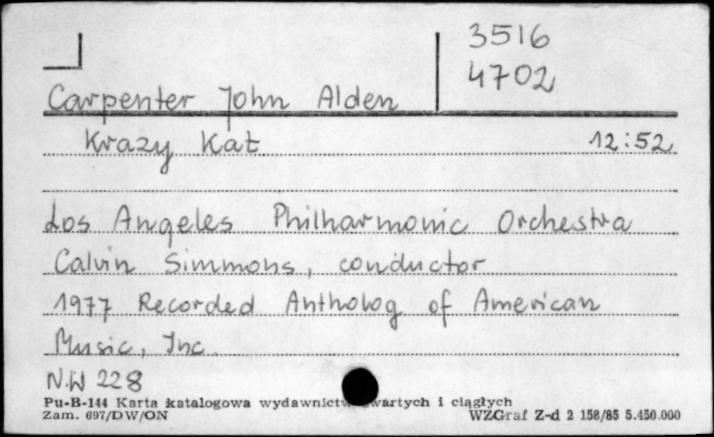 3516
4702
Carpenter John Alden
Krazy Kat 12:52
Los Angeles Philharmonic Orchestra
Calvin Simmons, conductor
1977 Recorded Antholog of American
Music, Inc.
N.W 228
Pu-B-144 Karta katalogowa wydawnictw zwartych i ciągłych
Zam. 697/DW/ON WZGraf Z-d 2 158/85 5.450.000